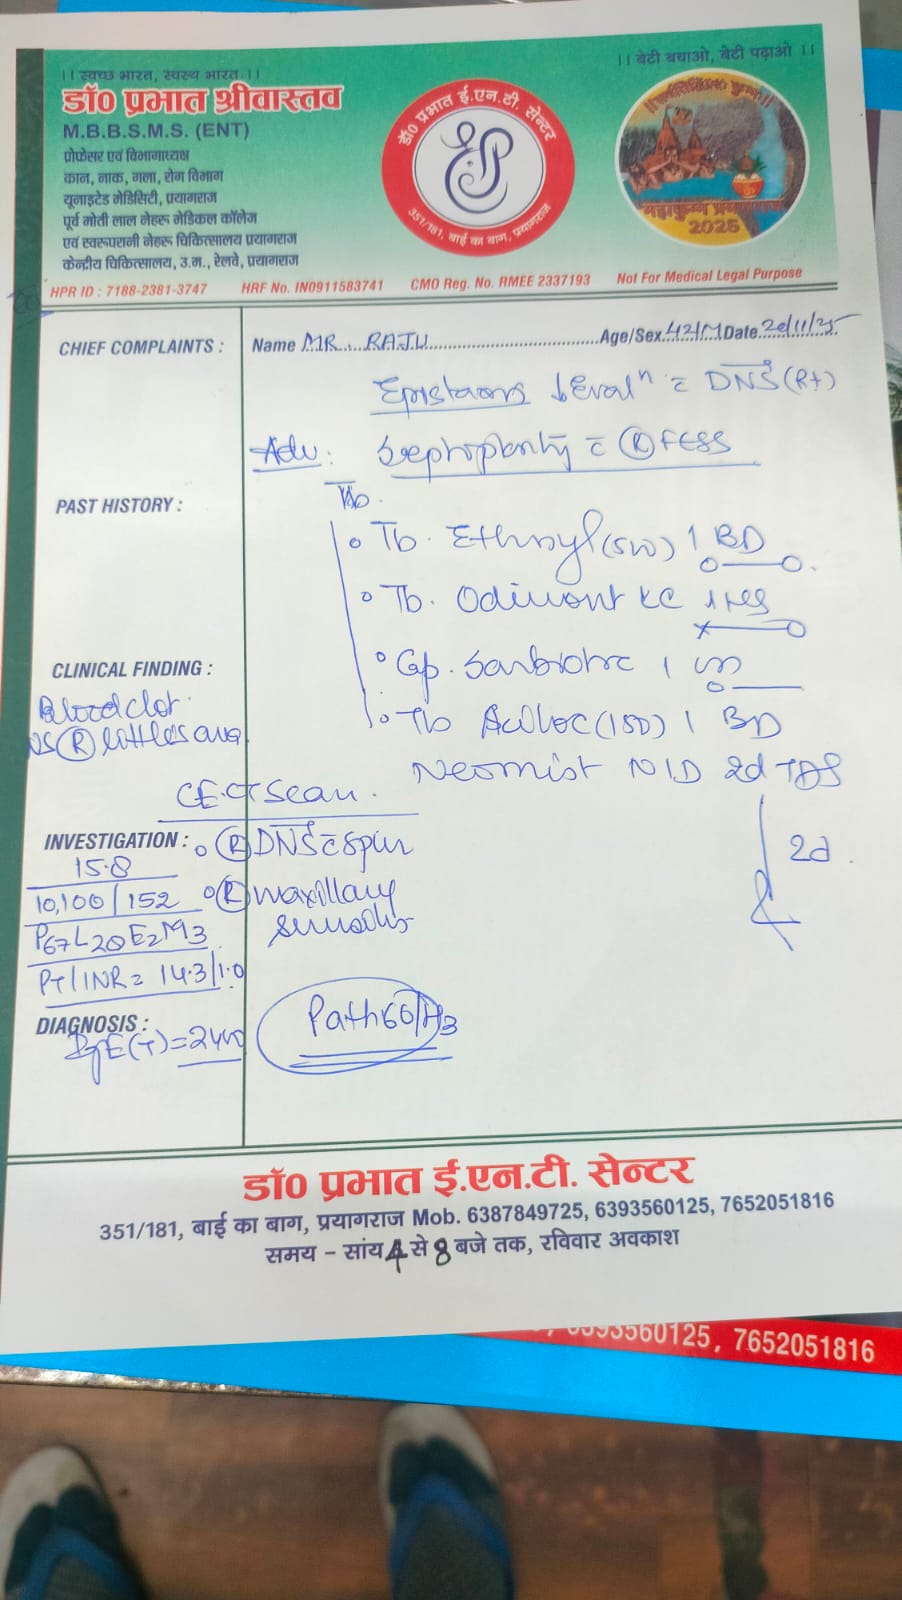 ।। स्वच्छ भारत, स्वस्थ भारत ।।
।। बेटी बचाओ, बेटी पढ़ाओ ।।
डॉ0 प्रभात श्रीवास्तव
M.B.B.S.M.S. (ENT)
प्रोफेसर एवं विभागाध्यक्ष
कान, नाक, गला, रोग विभाग
यूनाइटेड मेडिसिटी, प्रयागराज
पूर्व मोती लाल नेहरू मेडिकल कॉलेज
एवं स्वरूपरानी नेहरू चिकित्सालय प्रयागराज
केन्द्रीय चिकित्सालय, उ.म., रेलवे, प्रयागराज
डॉ0 प्रभात ई.एन.टी. सेन्टर
351/181, बाई का बाग, प्रयागराज
2025
HPR ID : 7188-2381-3747 HRF No. IN0911583741 CMO Reg. No. RMEE 2337193 Not For Medical Legal Purpose
CHIEF COMPLAINTS :
Name MR. RAJU Age/Sex 42/M Date 20/11/25
Epistaxis Evalⁿ DNS (Rt)
Adv: Septoplasty (R) FESS
PAST HISTORY :
Tb. 1 BD
Tb. Odimont LC 1 HS
CLINICAL FINDING :
Cap. 1
Blood clot
(R) little's area
Tb 1 BD
Neomist N/D 2d TDS
2d
CECT Scan.
INVESTIGATION :
(R) DNS spur
15.8
10,100/152
(R) maxillary
sinusitis
P67 L28 E2 M3
PT/INR = 14.3/1.0
DIAGNOSIS :
IgE(T) =
Path
डॉ0 प्रभात ई.एन.टी. सेन्टर
351/181, बाई का बाग, प्रयागराज Mob. 6387849725, 6393560125, 7652051816
समय – सांय 4 से 8 बजे तक, रविवार अवकाश
6393560125, 7652051816